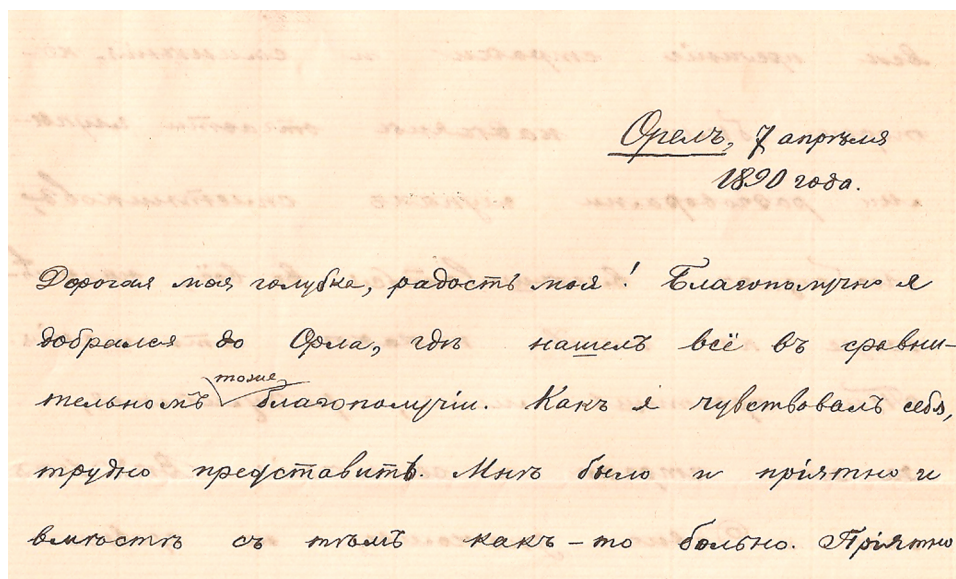 Орелъ, 7 апрѣля
1890 года.
Дорогая моя голубка, радость моя! Благополучно я
добрался до Орла, гдѣ нашелъ всё въ сравни-
тельномъ тоже благополучіи. Какъ я чувствовалъ себя,
трудно представить. Мнѣ было и пріятно и
вмѣстѣ съ тѣмъ какъ-то больно. Пріятно